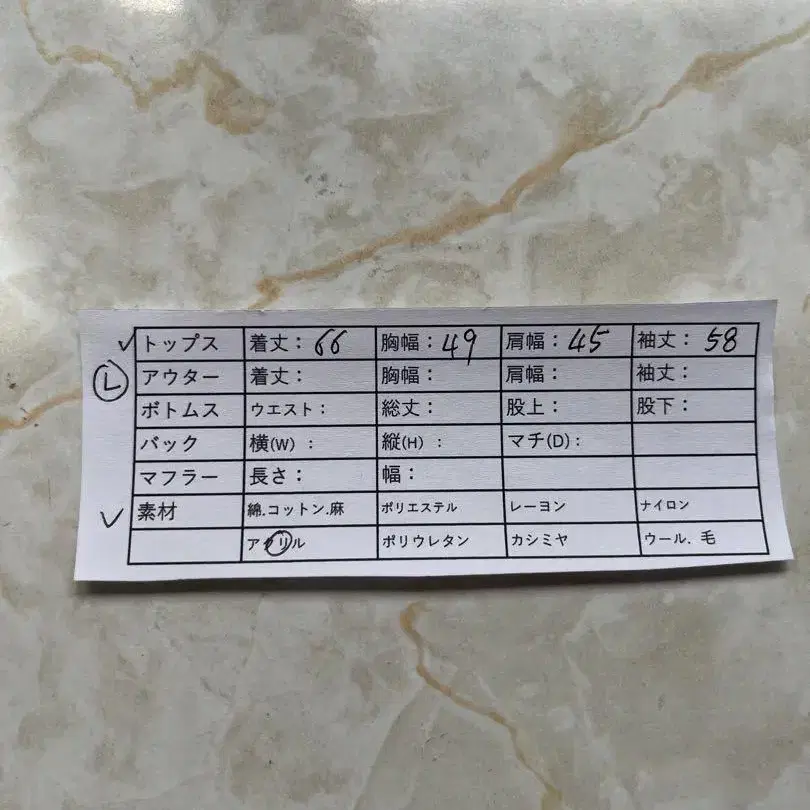 ✓ トップス 着丈：66 胸幅：49 肩幅：45 袖丈：58
Ⓛ アウター 着丈： 胸幅： 肩幅： 袖丈：
ボトムス ウエスト： 総丈： 股上： 股下：
バック 横(W)： 縦(H)： マチ(D)：
マフラー 長さ： 幅：
✓ 素材 綿.コットン.麻 ポリエステル レーヨン ナイロン
アクリル ポリウレタン カシミヤ ウール. 毛